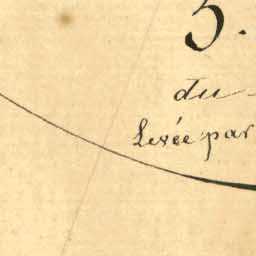 5.
du
Levée par